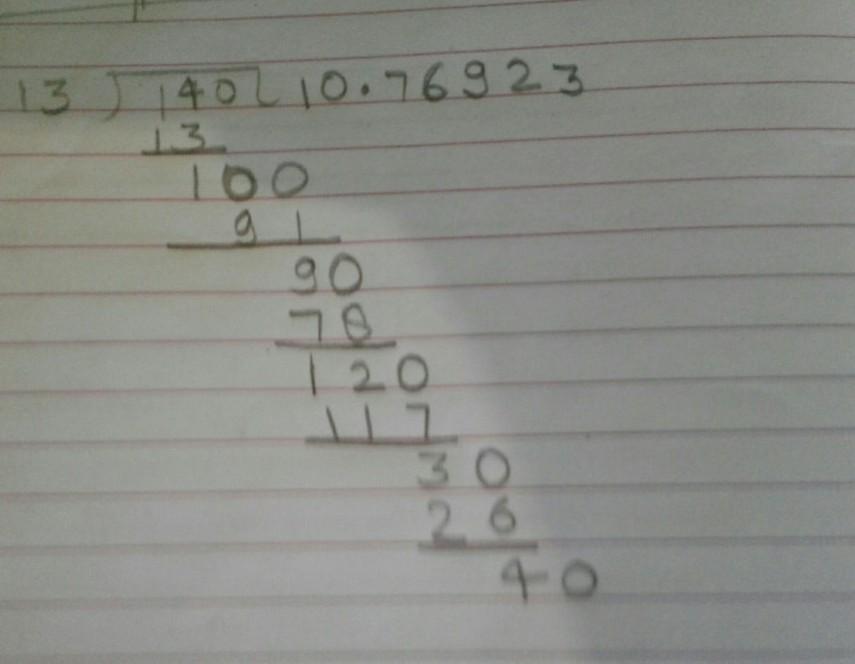 13 ) 140 ( 10.76923
13
100
91
90
78
120
117
30
26
40